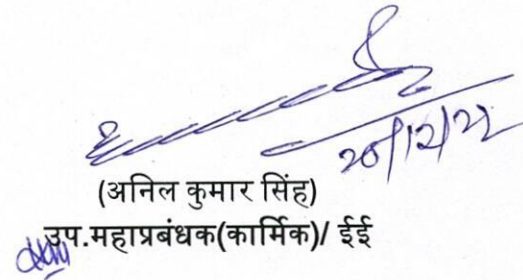 20/12/22
(अनिल कुमार सिंह)
उप.महाप्रबंधक(कार्मिक)/ ईई